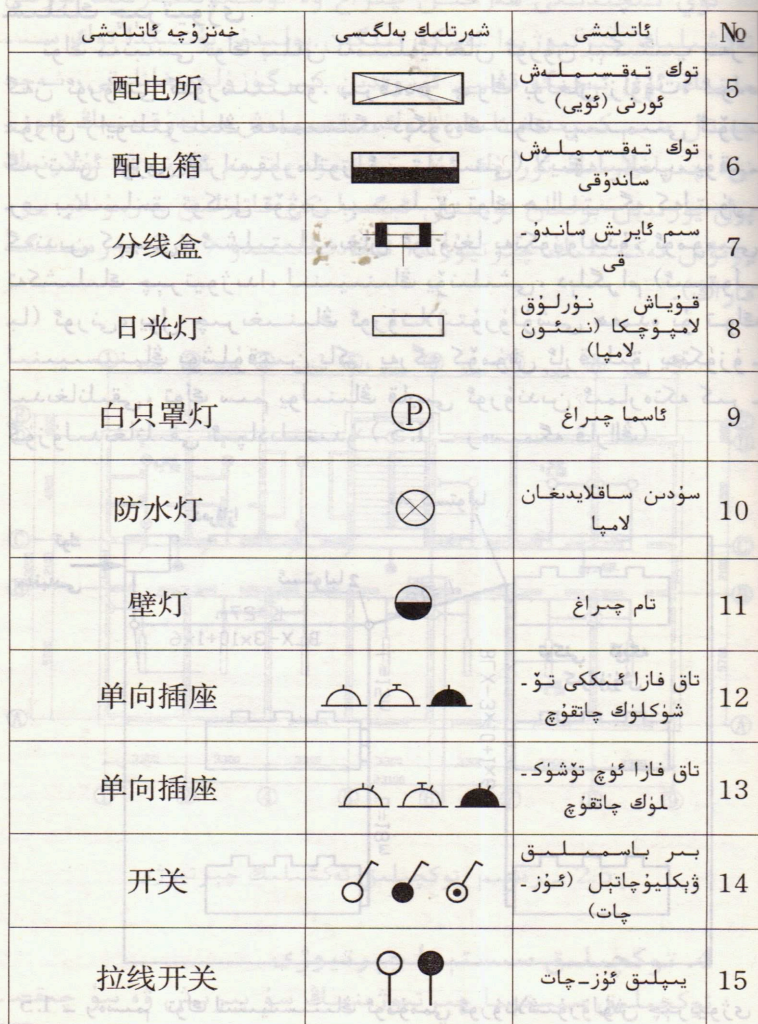 № ئاتىلىشى شەرتلىك بەلگىسى خەنزۇچە ئاتىلىشى
5 توك تەقسىملەش
ئورنى (ئۆيى)
配电所
6 توك تەقسىملەش
ساندۇقى
配电箱
7 سىم ئايرىش ساندۇ-
قى
分线盒
8 قۇياش نۇرلۇق
لامپۇچكا (نىئون
لامپا)
日光灯
9 ئاسما چىراغ
Ⓟ
白只罩灯
10 سۇدىن ساقلايدىغان
لامپا
防水灯
11 تام چىراغ
壁灯
12 تاق فازا ئىككى تۆ-
شۈكلۈك چاتقۇچ
单向插座
13 تاق فازا ئۈچ تۆشۈك-
لۈك چاتقۇچ
单向插座
14 بىر باسمىلىق
ۋىكليۇچاتېل (ئۈز-
چات)
开关
15 يىپلىق ئۈز-چات
拉线开关